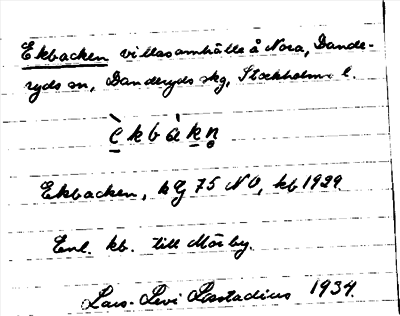 Ekbacken villasamhälle å Nora, Dande-
ryds sn, Danderyds skg, Stockholms l.
è̱kbàḵn̥
Ekbacken, kG 75 NO, kb 1929.
Enl. kb. till Mörby.
Lars-Levi Læstadius 1934.